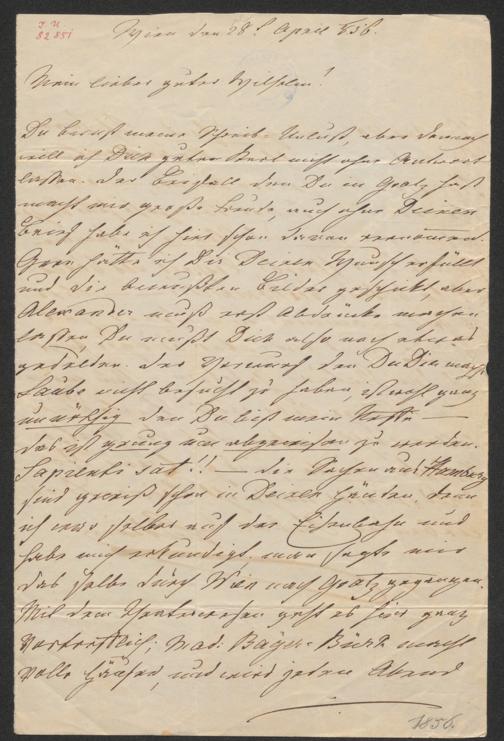 J. N.
82 851
Wien den 28t April 856.
Mein lieber guter Wilhelm!
Du kennst meine Schreib-Unlust, aber dennoch
will ich Dich guter Kerl nicht ohne Antwort
lassen. Der Beifall den Du in Gratz hast
macht mir große Freude, auch ohne Deinen
Brief habe ich hier schon davon vernommen.
Gern hätte ich Dir Deinen Wunsch erfüllt
und die bewußten Bilder geschickt, aber
Alexander muß erst Abdrücke machen
lassen Du mußt Dich also noch etwas
gedulden. Der Vorwurf den Du Dir machst
Laube nicht besucht zu haben, ist wohl ganz
unwichtig denn Du bist mein Neffe —
das ist genug um abgewiesen zu werden.
Sapienti sat!! — Die Sachen aus Hamburg
sind gewiß schon in Deinen Händen, denn
ich war selber auf der Eisenbahn und
habe mich erkundigt, man sagte mir
das selbe durch Wien nach Gratz gegangen.
Mit dem Theaterwesen geht es hier ganz
vortrefflich; Mad: Bayer-Bürk macht
volle Häuser, und wird jeden Abend
1856.